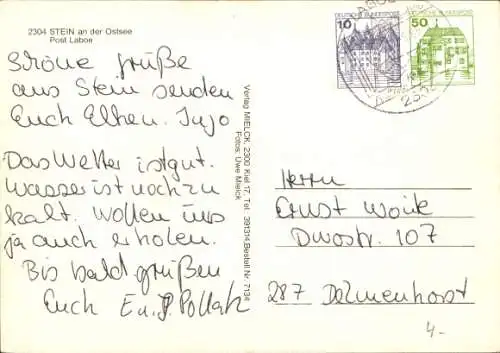 2304 STEIN an der Ostsee
Post Laboe
Schöne grüße
aus Stein senden
Euch Elhen. Ingo
Das Wetter ist gut.
Wasser ist noch zu
kalt. Wollen uns
ja auch erholen.
Bis bald grüßen
Euch E u. P. Pollak
Verlag MIELCK, 2300 Kiel 17, Tel. 391314, Bestell.Nr. 7134
Fotos: Uwe Mielck
DEUTSCHE BUNDESPOST
10
DEUTSCHE BUNDESPOST
50
Herrn
Ernst
Dwostr. 107
287 Delmenhorst
4-